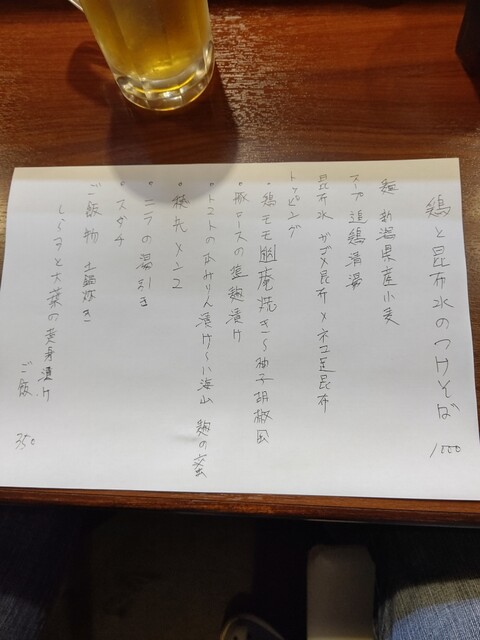 鶏と昆布水のつけそば 1000
麺 新潟県産小麦
スープ 追鶏清湯
昆布水 ガゴメ昆布×ネコ足昆布
トッピング
・鶏モモ幽庵焼き〜柚子胡椒風
・豚ロースの塩麹漬け
・トマトのみりん漬け〜小海山 麹の蜜
・穂先メンマ
・ニラの湯引き
・スダチ
ご飯物 土鍋炊き
しらすと大葉の黄身漬け
ご飯 350